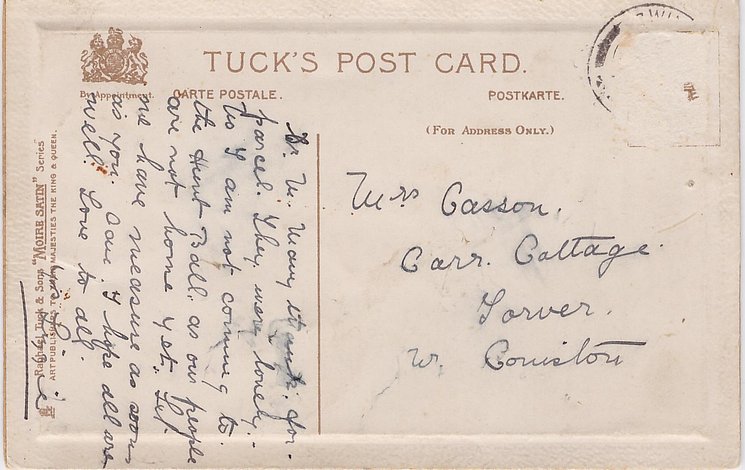 TUCK'S POST CARD.
By Appointment.
CARTE POSTALE.
POSTKARTE.
(FOR ADDRESS ONLY.)
Raphael Tuck & Sons "MOIRE SATIN" Series
ART PUBLISHERS TO THEIR MAJESTIES THE KING & QUEEN.
Dr. M. Many thanks. for
parcel. They were lovely.
No I am not coming to
the Hunt Ball. as our people
are not home yet. Let
me have measure as soon
as you. can. I hope all are
well. Love to all.
Mrs Casson.
Carr. Cottage.
Torver.
W. Coniston